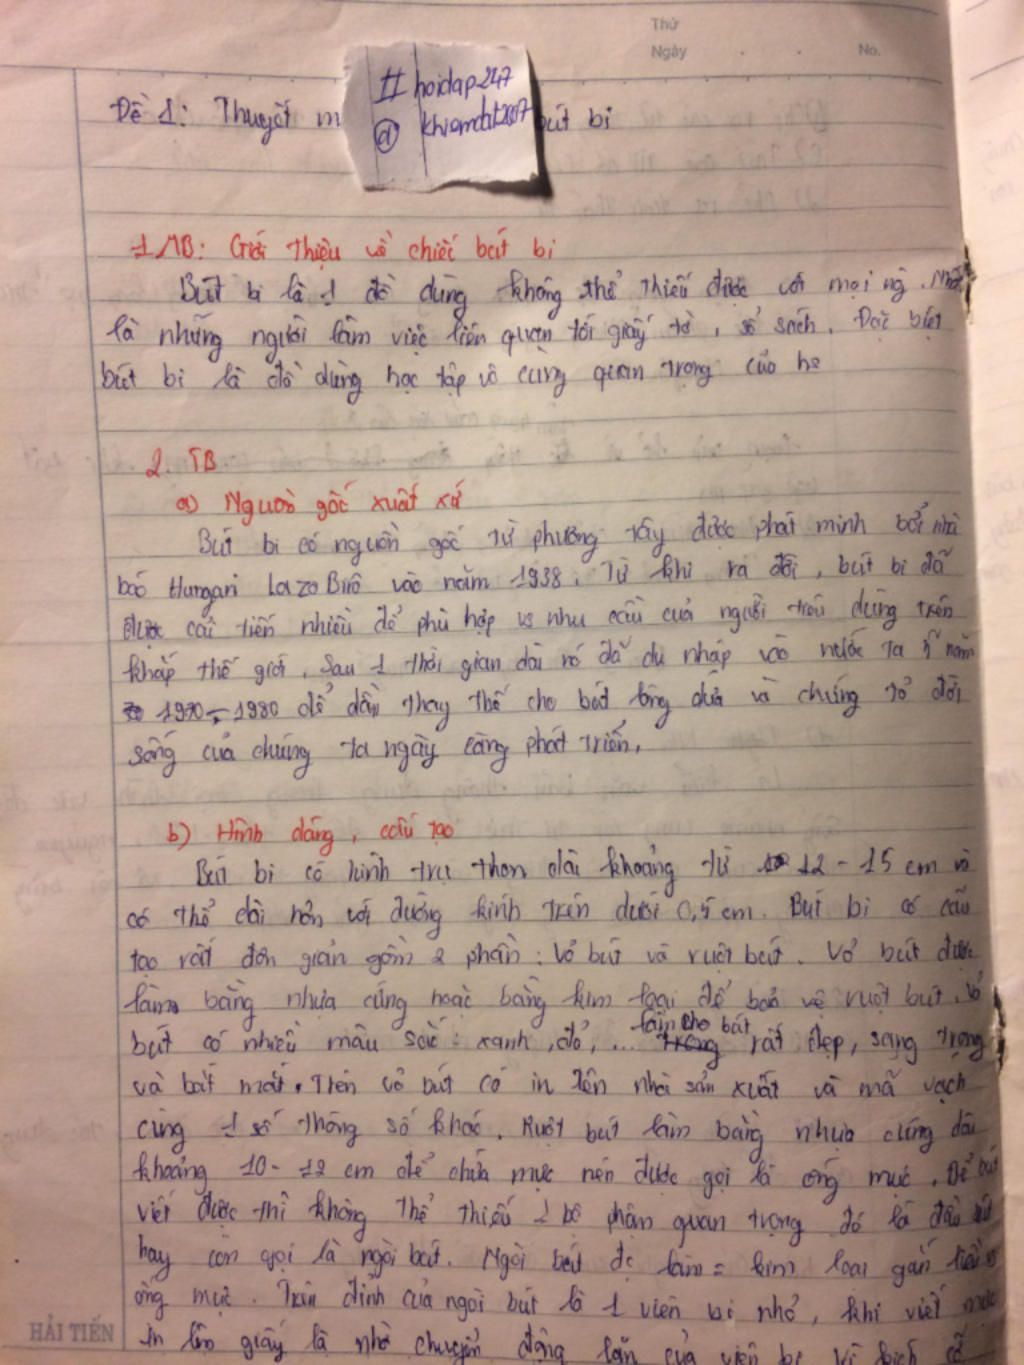 Thứ
Ngày . . No.
# hoidap247
@ khiemdat2007
Đề 1: Thuyết m bút bi
1 MB: Giới thiệu về chiếc bút bi
Bút bi là 1 đồ dùng không thể thiếu được với mọi ng. Nhất
là những người làm việc liên quan tới giấy tờ, sổ sách. Đặc biệt
bút bi là đồ dùng học tập vô cùng quan trọng của hs
2. TB
a) Nguồn gốc xuất xứ
Bút bi có nguồn gốc từ phương tây được phát minh bởi nhà
báo Hungari Lazo Biro vào năm 1938. Từ khi ra đời, bút bi đã
được cải tiến nhiều để phù hợp vs nhu cầu của người tiêu dùng trên
khắp thế giới. Sau 1 thời gian dài nó đã du nhập vào nước ta năm
1970 - 1980 để dần thay thế cho bút lông dừa và chứng tỏ đời
sống của chúng ta ngày càng phát triển.
b) Hình dáng, cấu tạo
Bút bi có hình trụ thon dài khoảng từ 12 - 15 cm và
có thể dài hơn với đường kính trên dưới 0,5 cm. Bút bi có cấu
tạo rất đơn giản gồm 2 phần: Vỏ bút và ruột bút. Vỏ bút được
làm bằng nhựa cứng hoặc bằng kim loại để bảo vệ ruột bút. Vỏ
bút có nhiều màu sắc: xanh, đỏ, ... làm cho bút rất đẹp, sang trọng
và bắt mắt. Trên vỏ bút có in tên nhà sản xuất và mã vạch
cùng 1 số thông số khác. Ruột bút làm bằng nhựa cứng dài
khoảng 10 - 12 cm để chứa mực nên được gọi là ống mực. Để bút
viết được thì không thể thiếu 1 bộ phận quan trọng đó là đầu bút
hay còn gọi là ngòi bút. Ngòi bút đc làm = kim loại gắn liền vs
ống mực. Trên đỉnh của ngòi bút là 1 viên bi nhỏ, khi viết mực
in lên giấy là nhờ chuyển động lăn của viên bi
HẢI TIẾN